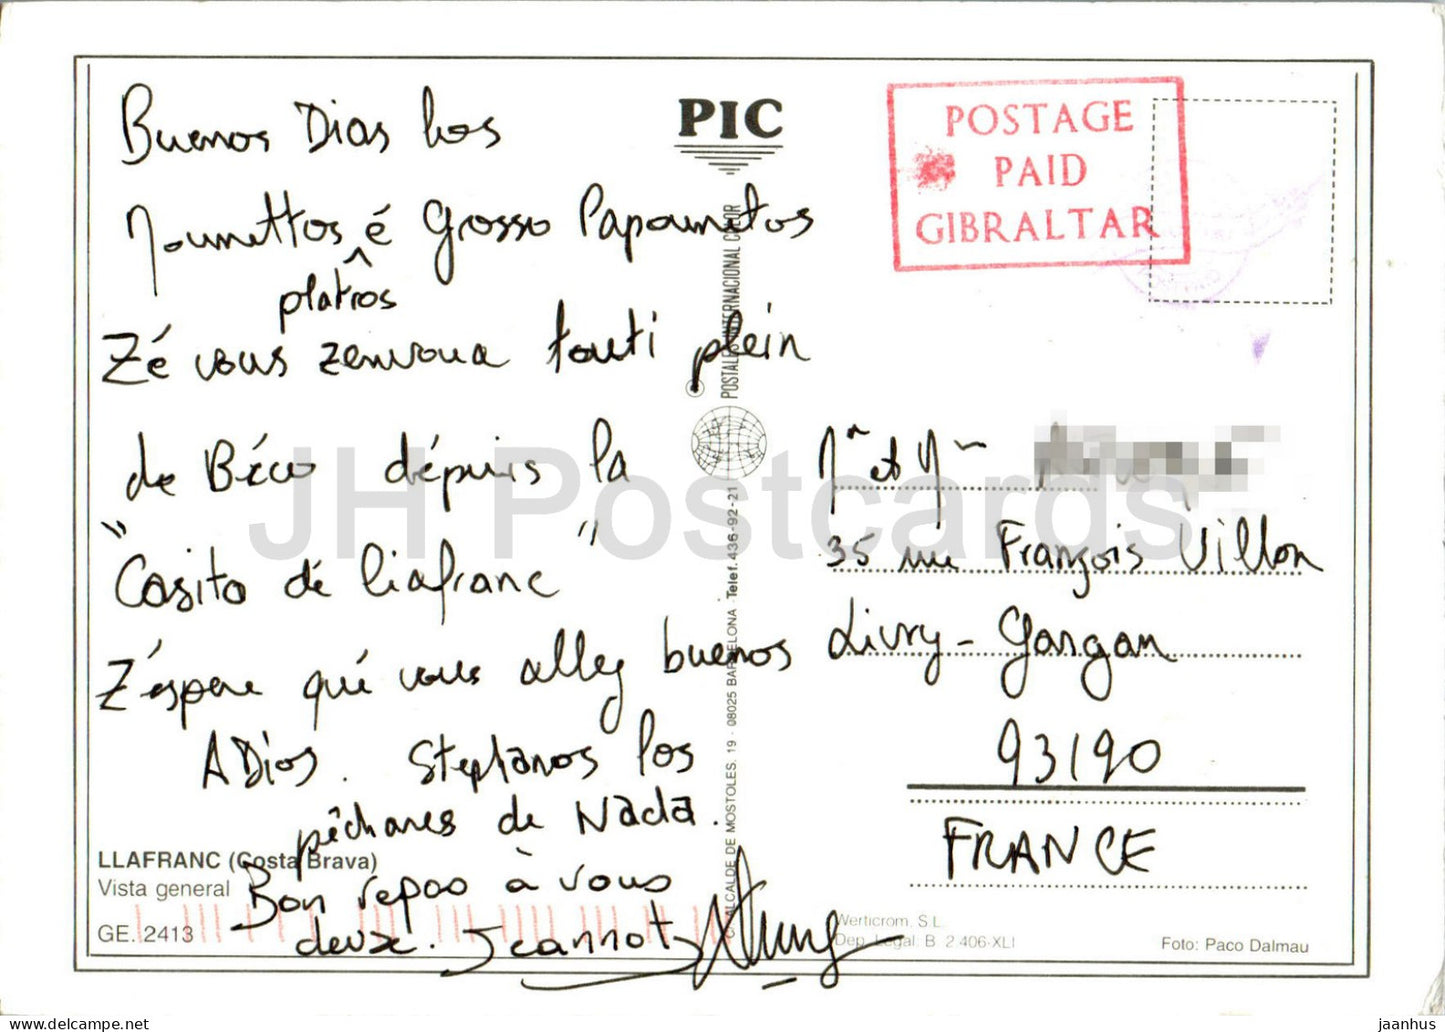 Buenos Dias los
Moumettos é Grosso Papoumetos
platros
Zé vous zenvoua touti plein
de Béco dépuis la
"Casito dé liafranc"
Z'éspere qué vous allez buenos
ADios. Stephanos los
pêchares de Nada.
Bon repao à vous
deux. Jeannot
PIC
POSTALES INTERNACIONAL COLOR
C/. ALCALDE DE MOSTOLES, 19 - 08025 BARCELONA - Telef. 436-92-21
POSTAGE
PAID
GIBRALTAR
Mr et Mme
35 rue François Villon
Livry-Gargan
93190
FRANCE
LLAFRANC (Costa Brava)
Vista general
GE. 2413
Werticrom, S.L.
Dep. Legal: B. 2.406-XLI
Foto: Paco Dalmau
JH Postcards
delcampe.net
jaanhus